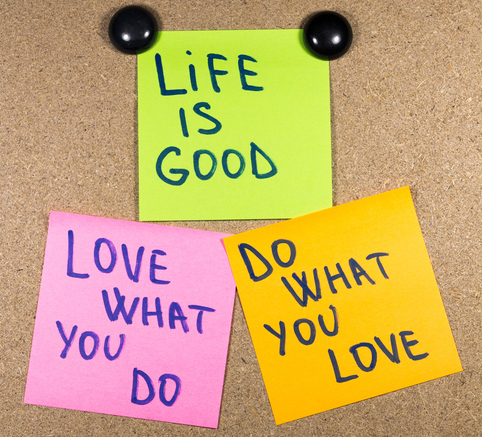 LiFE
IS
GOOD
LOVE
WHAT
YOU
DO
DO
WHAT
YOU
LOVE